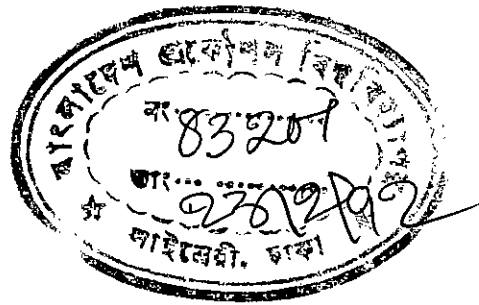 বাংলাদেশ প্রকৌশল বিশ্ববিদ্যালয়
নং 83201
তাং
লাইব্রেরী, ঢাকা